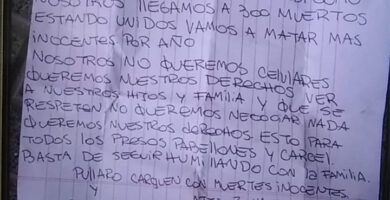 NOSOTROS LLEGAMOS A 300 MUERTOS
ESTANDO UNIDOS VAMOS A MATAR MAS
INOCENTES POR AÑO
NOSOTROS NO QUEREMOS CELULARES
QUEREMOS NUESTROS DERECHOS VER
A NUESTROS HIJOS Y FAMILIA Y QUE SE
RESPETEN NO QUEREMOS NEGOCIAR NADA
QUEREMOS NUESTROS DERECHOS. ESTO PARA
TODOS LOS PRESOS PABELLONES Y CARCEL.
BASTA DE SEGUIR HUMILLANDO CON LA FAMILIA.
PULLARO CARGUEN CON MUERTES INOCENTES.
Y